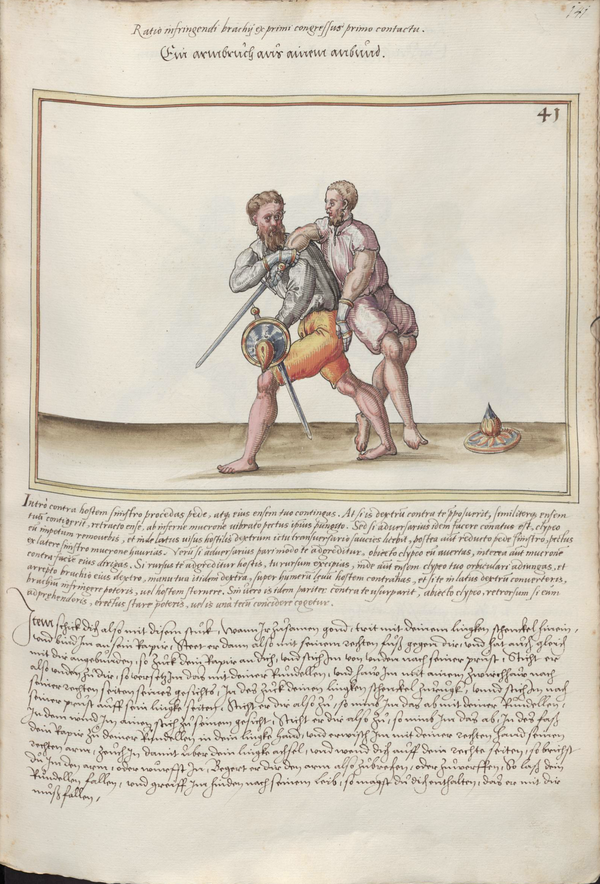 141
Ratio infringendi brachij ex primi congressus primo contactu.
Ein armbruch aus ainem anbund.
41
Intro contra hostem sinistro procedas pede, atq. eius ensem tuo contingas. At si is dextru contra te proposuerit, similiterq. ensem
tuu contigerit, retracto ense, ab inferne mucrone vibrato pectus ipsius pungito. Sed si adversarius idem facere conatus est, clypeo
eu impetum removebis, et inde latus visus hostilis dextrum ictu transversario saucies licebit, postea aut reducto pede sinistro, pectus
ex latere sinistro mucrone haurias. Veru si adversarius pari modo te adgreditur, obiecto clypeo eu avertas, interea aut mucrone
contra facie eius dirigas. Si rursus te adgreditur hostis, tu rursum excipias, inde aut ensem clypeo tuo orbiculari adiungas, et
arrepto brachio eius dextro, manu tua itidem dextra, super humeru levu hostem contrahas, et si te in latus dextru converteris,
brachiu infringere poteris, vel hostem sternere. Sin vero is idem pariter contra te usurparit, abiecto clypeo, retrorsum si eum
adprehenderis, erectus stare poteris, vel is una tecu concidere cogetur.
Item schick dich also mit disem stuck, Wann Ir zusamen gond, trit mit deinem lingken schenckel hinein,
und bind Im an sein Rapir, Steet er dann also mit seinem rechten fuß gegen dir, und hat auch gleich
mit dir angebunden, so zuck dein Rapir an dich, und stich Im von unden nach seiner prust, Sticht er
also unden zu dir, so versetz In das mit deiner Rundellen, und haw In mit ainem zwirchhaw nach
seiner rechten seiten seines gesichts, In des zuck deinen lingken schenckel zurugk, und stich Im nach
seiner prust auff sein lingke seiten, Sticht er dir also zu, so nims Im das ab mit deiner Rundellen,
In dem wind Im ainen stich zu seinem gesicht, Sticht er dir also zu, so nims Im das ab, In des faß
dein Rapir zu deiner Rundellen in dein lingke hand, und erwisch Im mit deiner rechten hand seinen
rechten arm, zeuch In damit uber dein lingke achsel, und wend dich auff dein rechte seiten, so brichst
du Im den arm, oder wurffst In, Begert er dir den arm also zubrechen, oder zuwerffen, So laß dein
Rundellen fallen, und greiff Im hinden nach seinem leib, so magst du dich enthalten, das er mit dir
muß fallen,